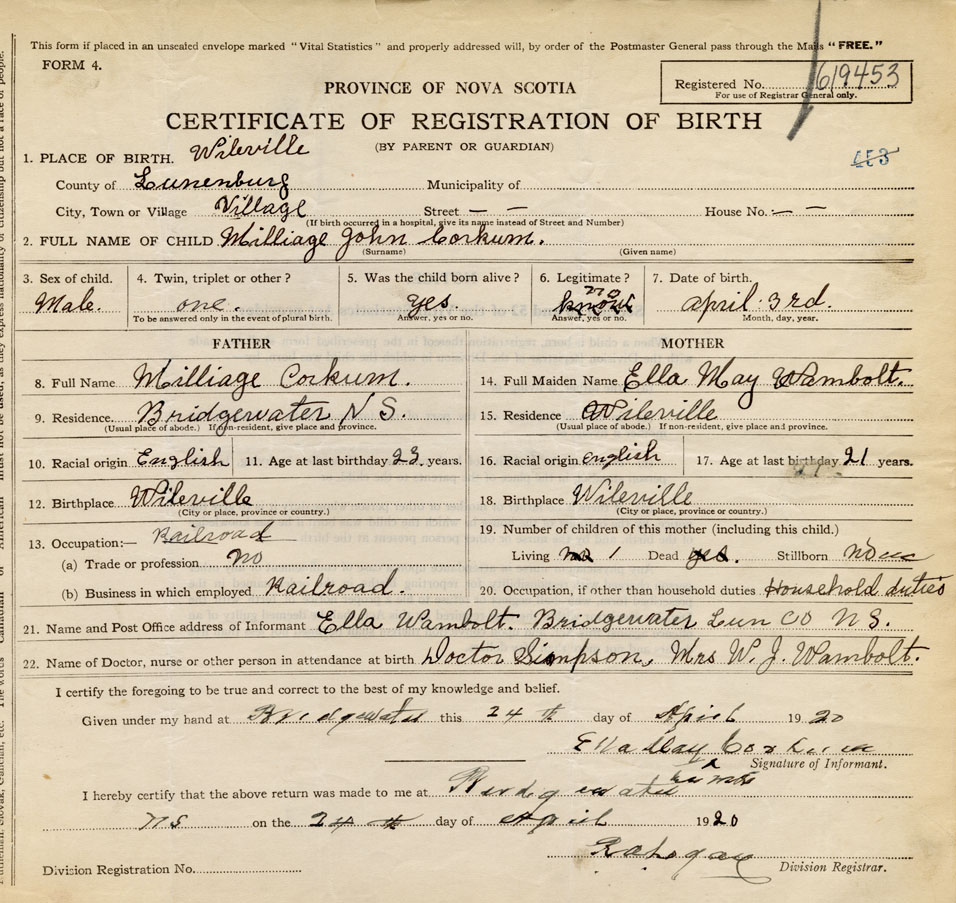 This form if placed in an unsealed envelope marked "Vital Statistics" and properly addressed will, by order of the Postmaster General pass through the Mails "FREE."
FORM 4.
Registered No. 619453
For use of Registrar General only.
PROVINCE OF NOVA SCOTIA
CERTIFICATE OF REGISTRATION OF BIRTH
(BY PARENT OR GUARDIAN)
1. PLACE OF BIRTH. Wileville
County of Lunenburg Municipality of
City, Town or Village Village Street — — House No. — —
(If birth occurred in a hospital, give its name instead of Street and Number)
2. FULL NAME OF CHILD Milliage John Corkum.
(Surname) (Given name)
3. Sex of child. 4. Twin, triplet or other? 5. Was the child born alive? 6. Legitimate? 7. Date of birth.
Male. one. Yes. no april 3rd.
To be answered only in the event of plural birth. Answer, yes or no. Answer, yes or no. Month, day, year.
FATHER MOTHER
8. Full Name Milliage Corkum. 14. Full Maiden Name Ella May Wambolt.
9. Residence. Bridgewater N S. 15. Residence Wileville
(Usual place of abode.) If non-resident, give place and province. (Usual place of abode.) If non-resident, give place and province.
10. Racial origin English 11. Age at last birthday 23. years. 16. Racial origin english 17. Age at last birthday 21 years.
12. Birthplace Wileville 18. Birthplace Wileville
(City or place, province or country.) (City or place, province or country.)
13. Occupation:— Railroad 19. Number of children of this mother (including this child.)
(a) Trade or profession no Living 1 Dead Stillborn
(b) Business in which employed Railroad. 20. Occupation, if other than household duties Household duties
21. Name and Post Office address of Informant Ella Wambolt. Bridgewater Lun CO N S.
22. Name of Doctor, nurse or other person in attendance at birth Doctor Simpson, Mrs W. J. Wambolt.
I certify the foregoing to be true and correct to the best of my knowledge and belief.
Given under my hand at Bridgewater this 24 th day of April 1920
Ella May Corkum
Signature of Informant.
I hereby certify that the above return was made to me at Bridgewater
NS on the 24 th day of April 1920
Division Registration No. Division Registrar.